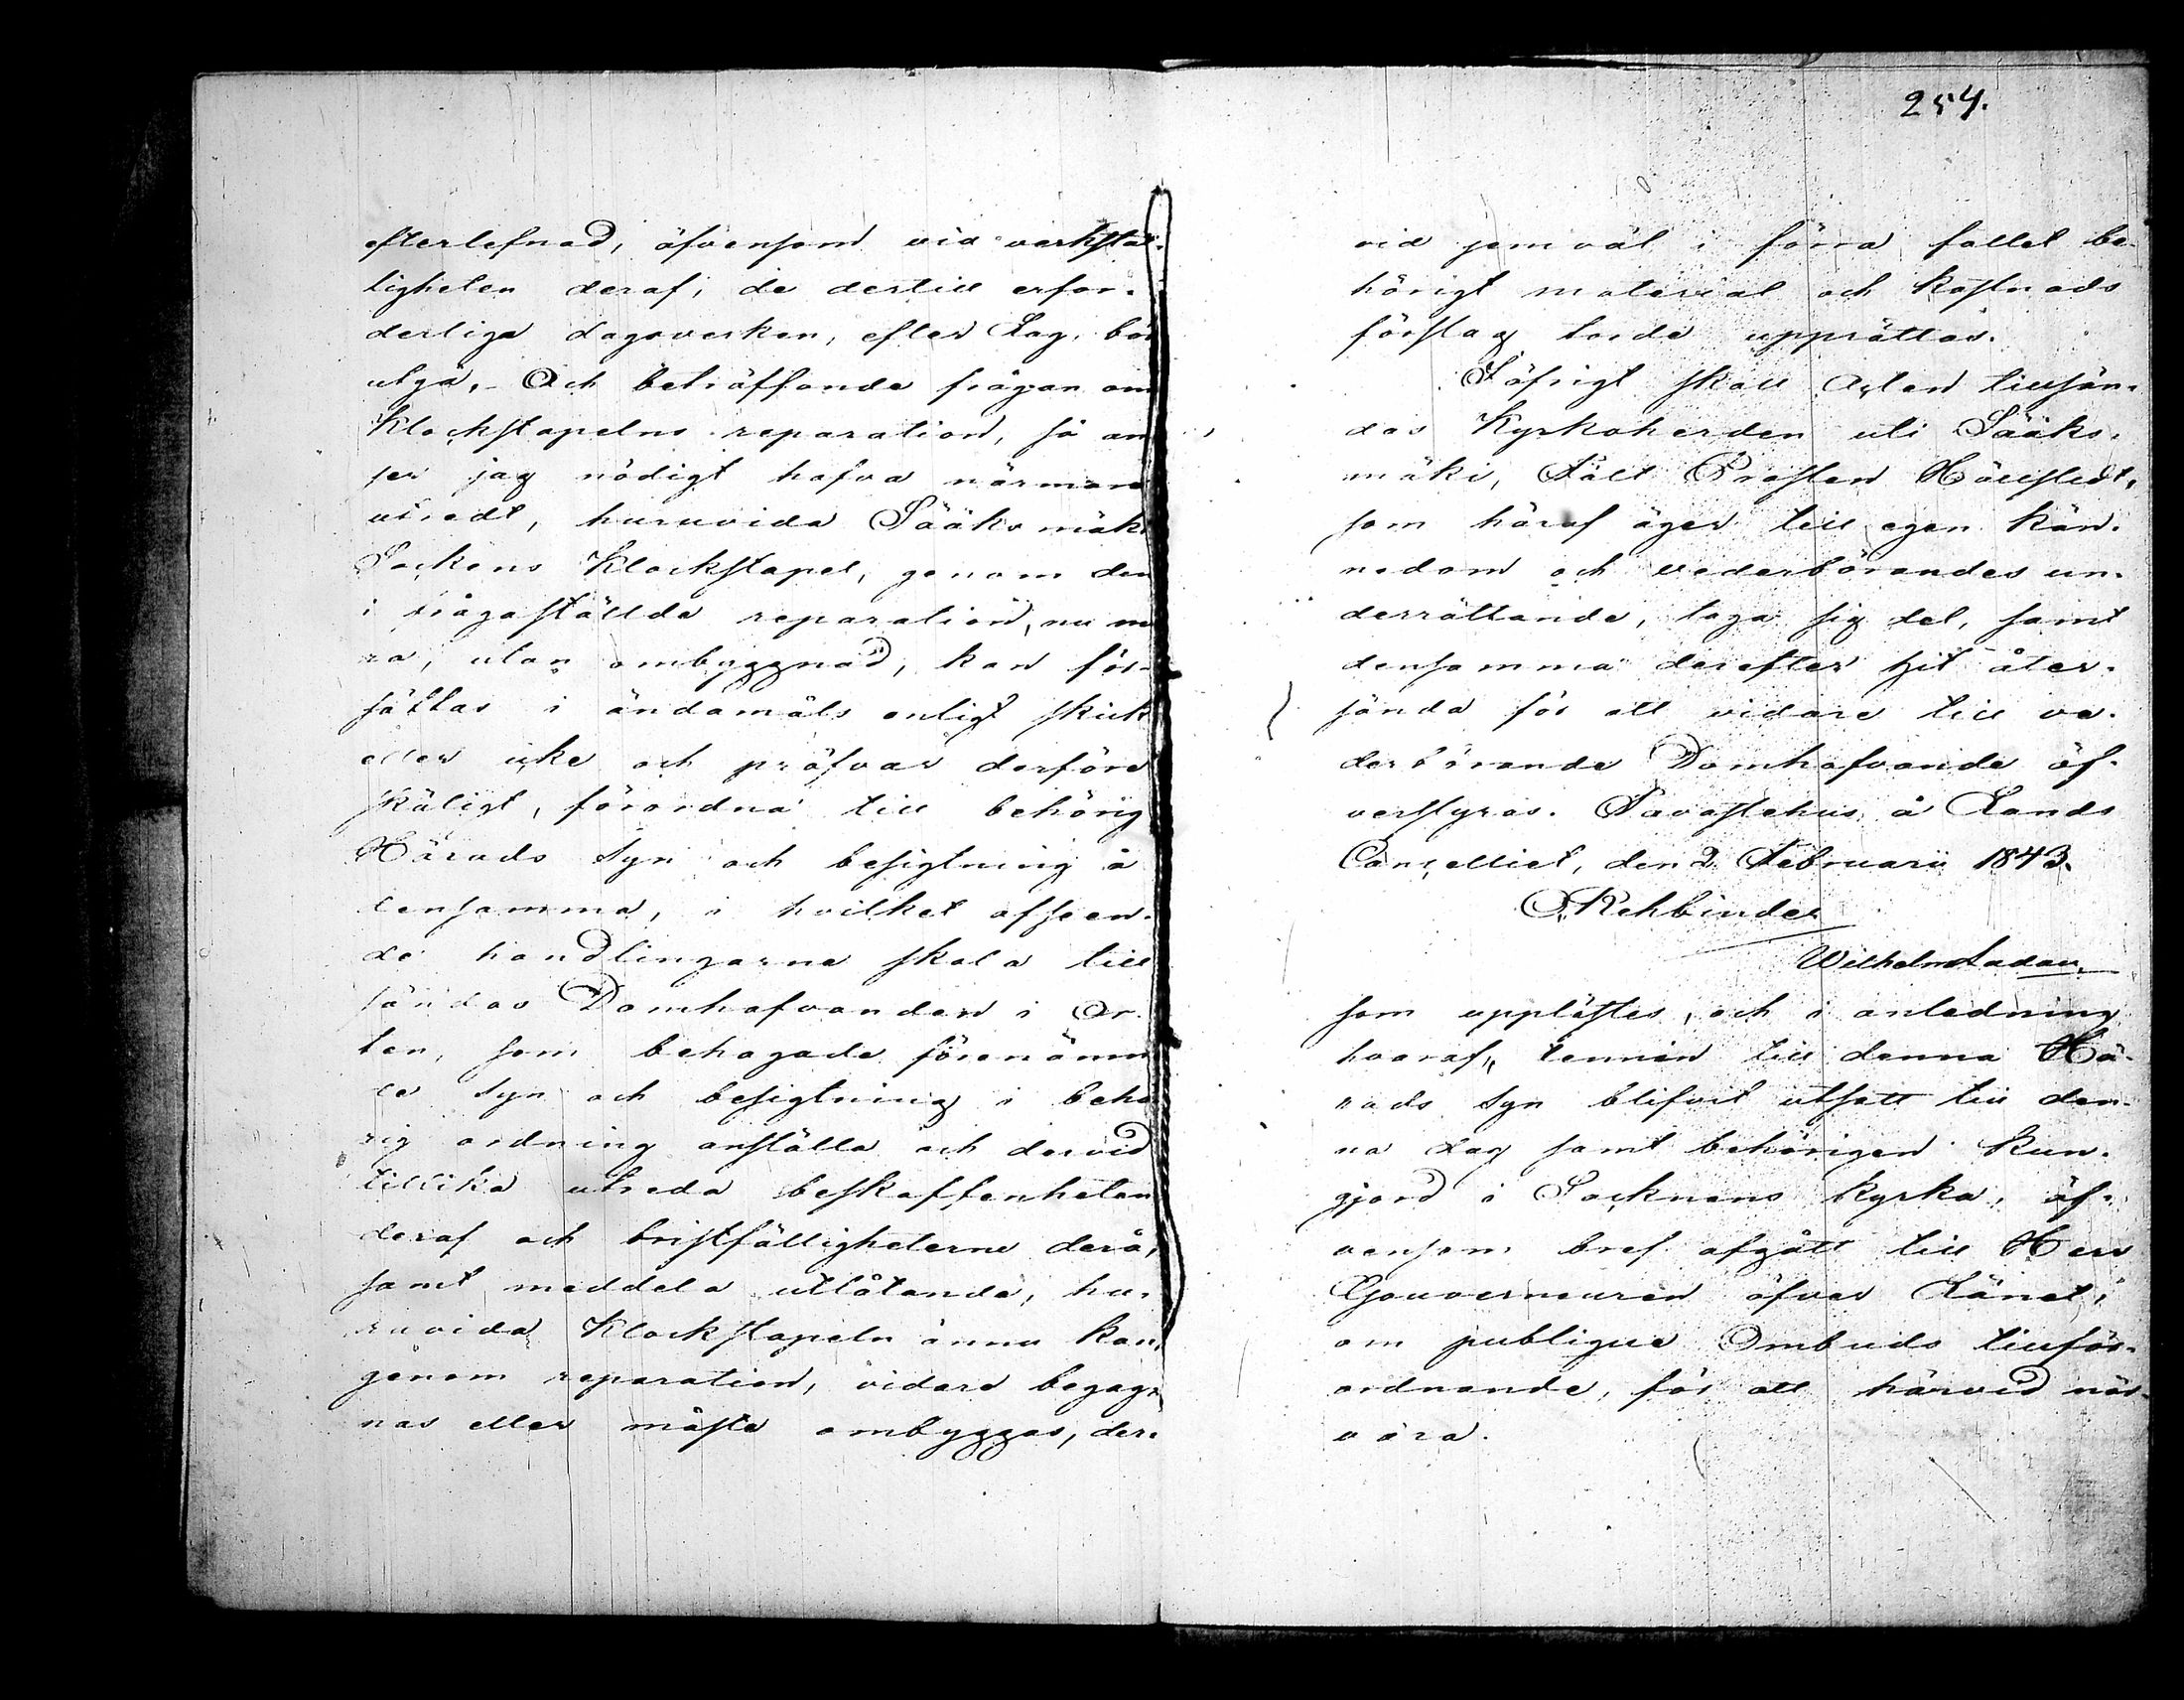 efterlefnad, äfvensom vid verkstäl-
ligheten deraf, de dertill erfor-
derliga dagsverken, efter Lag, bör
utgå, – Och beträffande frågan om
Klockstapelns reparation, så an
ser jag nödigt hafva närmare
utredt, huruvida Sääksmäki
Sockens Klockstapel, genom den
i frågaställda reparation, nu me
ra, utan ombyggnad, kan för-
sättas i ändamåls enligt skick
eller icke och pröfvar derföre
skäligt, förordna till behörig
Härads Syn och besigtning å
densamma, i hvilket afseen-
de handlingarne skola till
sändas Domhafvanden i Or-
ten, som behagade förenämn
de syn och besigtning i behö
rig ordning anställa och dervid
tillika utreda beskaffenheten
deraf och bristfälligheterne derå,
samt meddela utlåtande, hu-
ruvida Klockstapeln ännu kan,
genom reparation, vidare begag-
nas eller måste ombyggas, der-
254.
vid jemväl i förra fallet be-
hörigt material och kostnads
förslag borde upprättas.
I öfrigt skall Acten tillsän-
das Kyrkoherden uti Sääks-
mäki, Fält Prosten Hällstedt,
som häraf äger till egen kän-
nedom och vederbörandes un-
derrättande, taga sig del, samt
densamma derefter hit åter-
sända för att vidare till ve-
derbörande Domhafvande öf-
verstyras. Tavastehus å Lands
Cancelliet, den 2 Februarii 1843.
O. Rehbinder
Wilhelm
som upplästes, och i anledning
hvaraf, termin till denna Hä-
rads Syn blifvit utsatt till den-
na dag samt behörigen kun-
gjord i Socknens kyrka, äf-
vensom bref afgått till Herr
Gouverneuren öfver Länet,
om publique Ombuds tillför-
ordnande, för att härvid när-
vara.